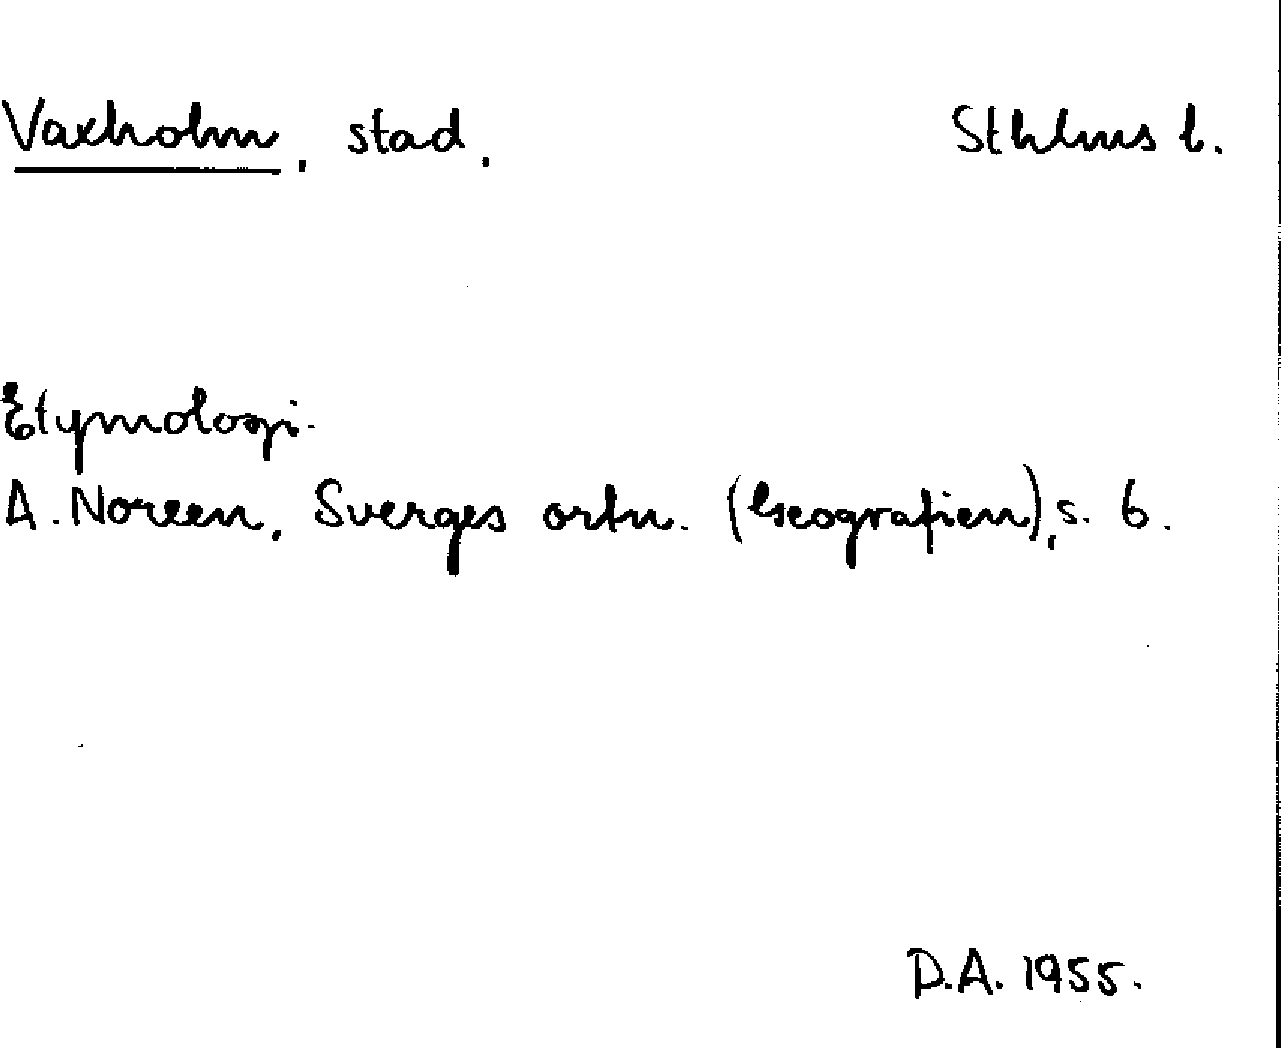 Vaxholm, stad,
Sthlms l.
Etymologi.
A. Noreen, Sverges ortn. (Geografien), s. 6.
D.A. 1955.